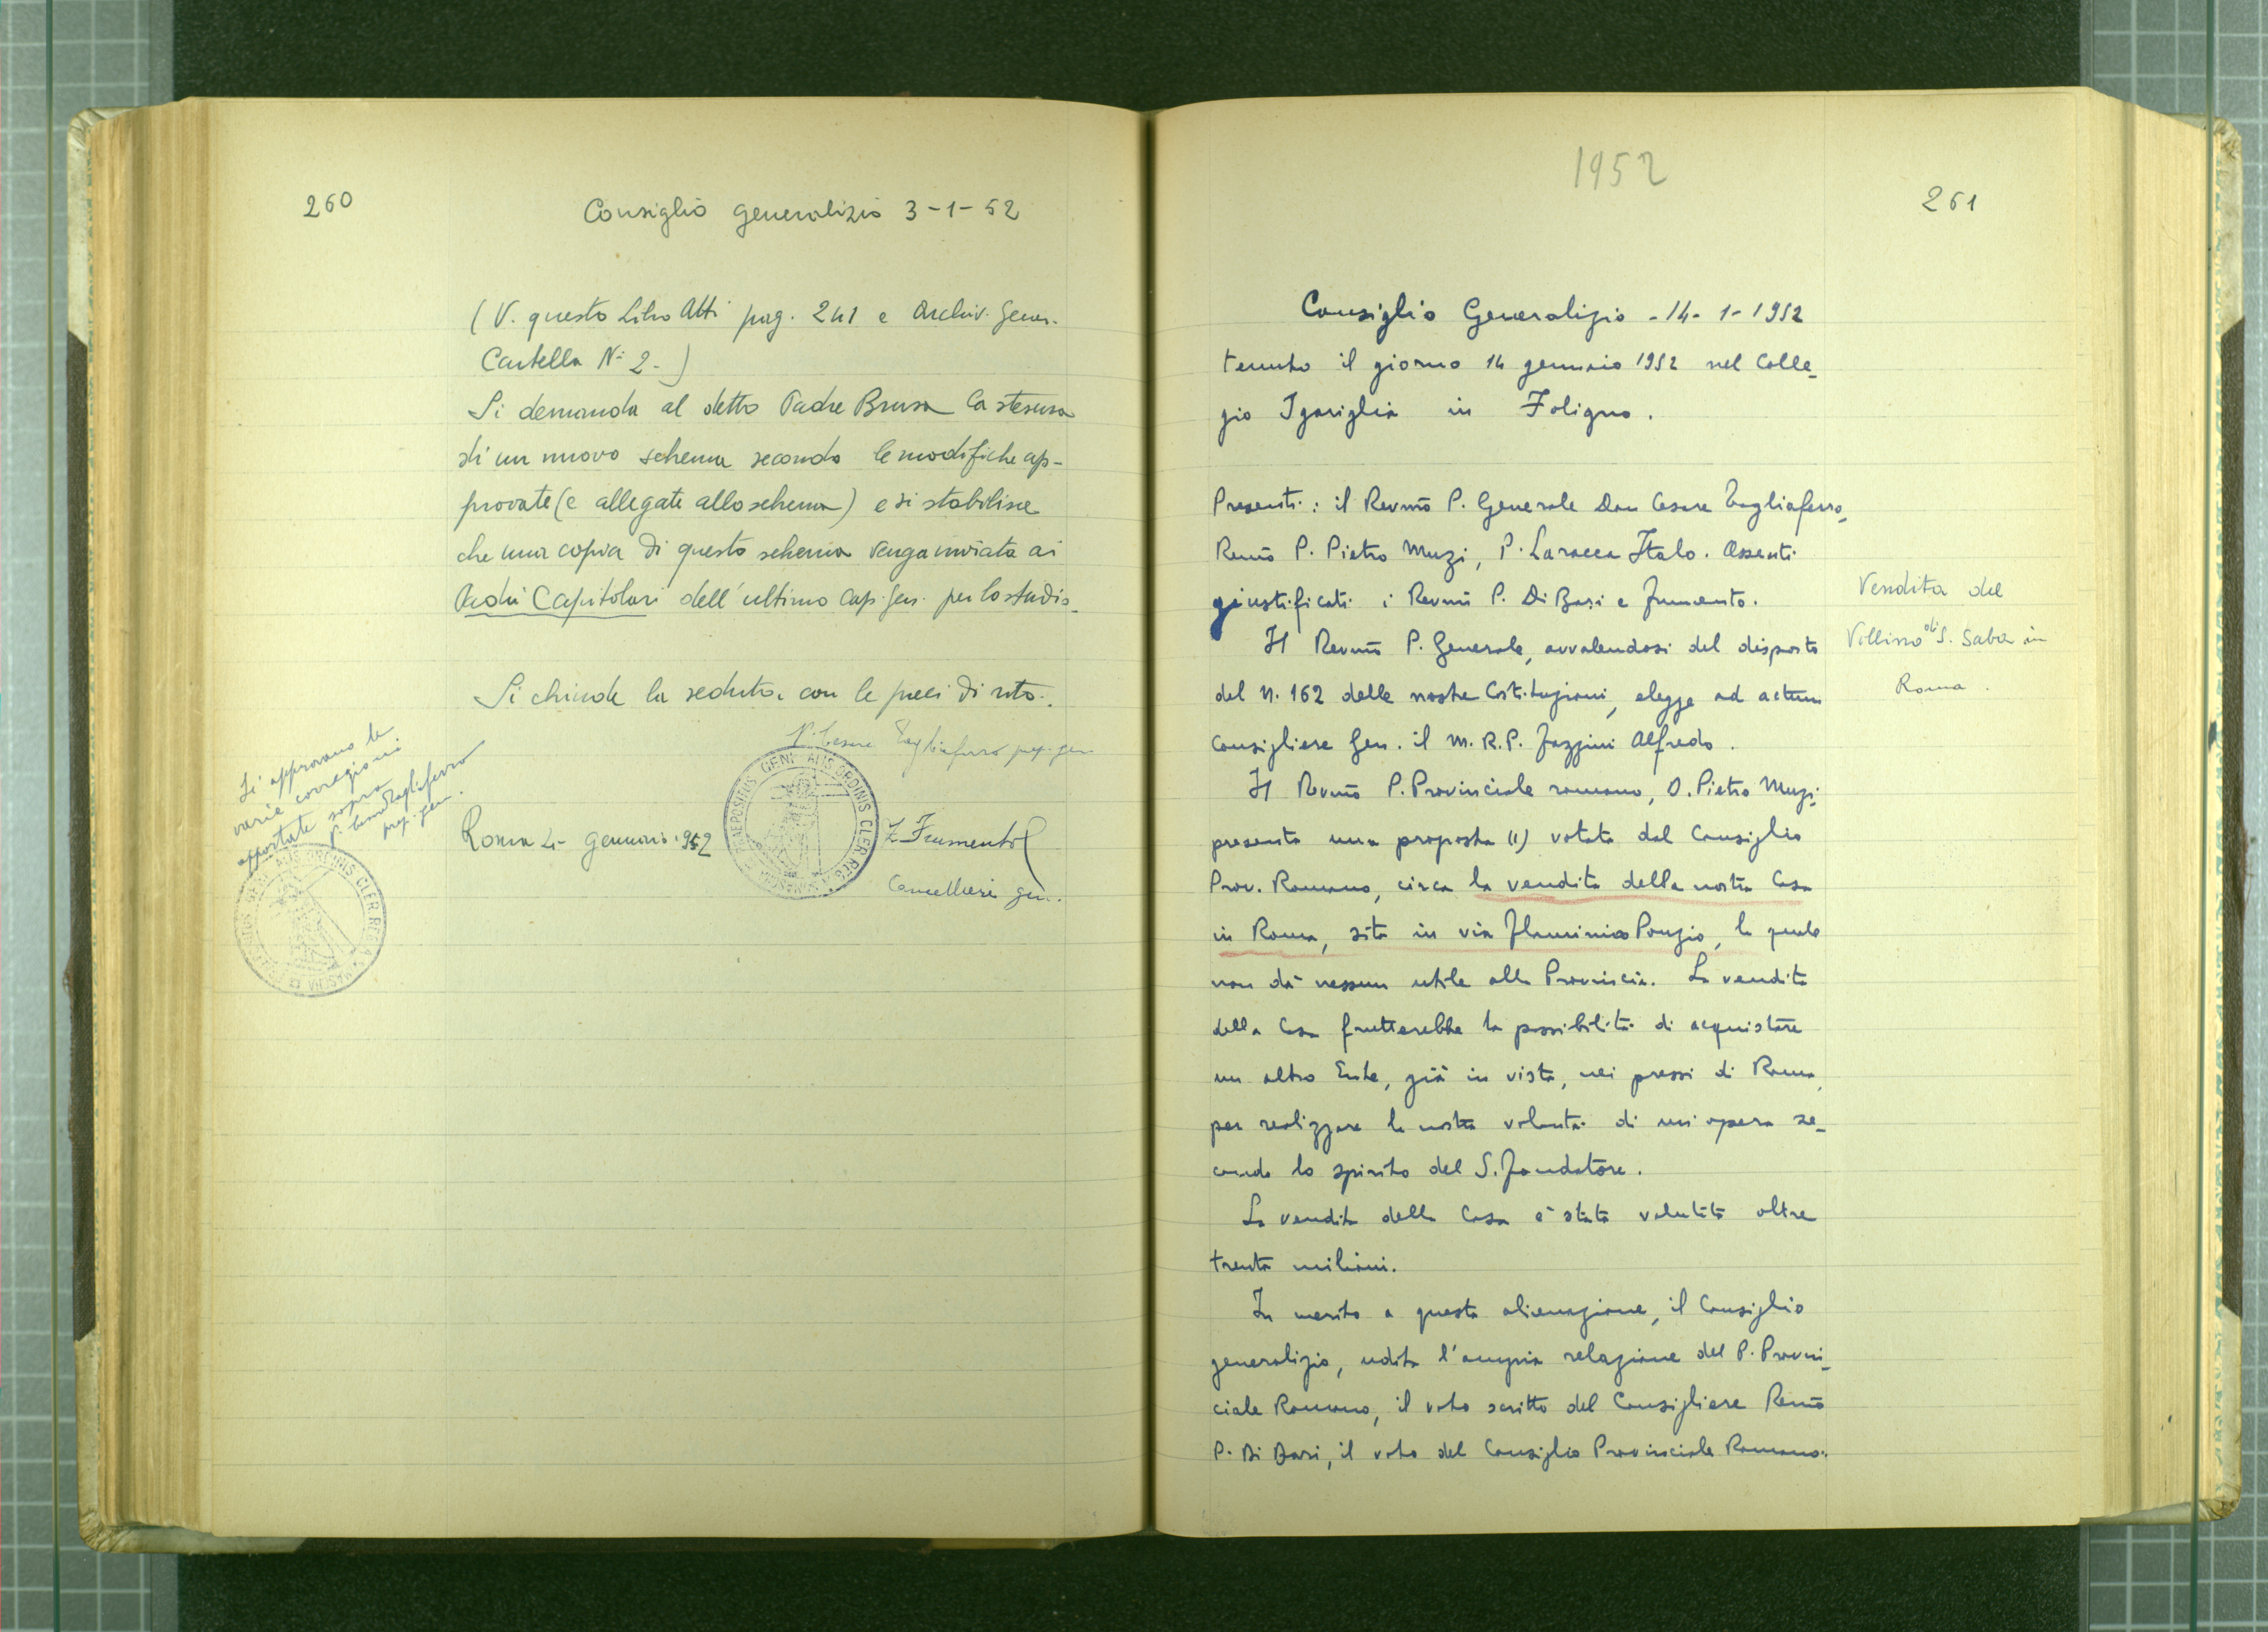 260
Consiglio generalizio 3-1-52
(V. questo Libro Atti pag. 241 e Archiv. Gener.
Cartella N° 2.)
Si demanda al detto Padre Brusa la stesura
di un nuovo schema secondo le modifiche ap-
provate (e allegate allo schema) e si stabilisce
che una copia di questo schema venga inviata ai
Padri Capitolari dell'ultimo Cap. Gen. per lo studio.
Si chiude la seduta con le preci di rito.
P. Cesare Tagliaferro prep. gen.
Si approvano le
varie correzioni
apportate sopra
P. Cesare Tagliaferro
prep. gen.
Roma 4 - gennaio 1952
Z. Frumento
Cancelliere gen.
PRAEPOSITUS GENERALIS ORDINIS CLER. REG. A SOMASCHA
PRAEPOSITUS GENERALIS ORDINIS CLER. REG. A SOMASCHA
1952
261
Consiglio Generalizio - 14-1-1952
tenuto il giorno 14 gennaio 1952 nel Colle-
gio Sgariglia in Foligno.
Presenti: il Revmo P. Generale Don Cesare Tagliaferro,
Revmo P. Pietro Muzi, P. Laracca Italo. Assenti
giustificati i Revmi P. Di Bari e Frumento.
Il Revmo P. Generale, avvalendosi del disposto
del N. 162 delle nostre Costituzioni, elegge ad actum
Consigliere Gen. il M. R. P. Fazzini Alfredo.
Il Revmo P. Provinciale romano, D. Pietro Muzi
presenta una proposta (1) votata dal Consiglio
Prov. Romano, circa la vendita della nostra Casa
in Roma, sita in via Flaminio Ponzio, la quale
non dà nessun utile alla Provincia. La vendita
della Casa frutterebbe la possibilità di acquistare
un altro Ente, già in vista, nei pressi di Roma,
per realizzare la nostra volontà di un'opera se-
condo lo spirito del S. Fondatore.
La vendita della Casa è stata valutata oltre
trenta milioni.
In merito a questa alienazione, il Consiglio
generalizio, udita l'ampia relazione del P. Provin-
ciale Romano, il voto scritto del Consigliere Revmo
P. Di Bari, il voto del Consiglio Provinciale Romano.
Vendita del
Villino di S. Saba in
Roma.